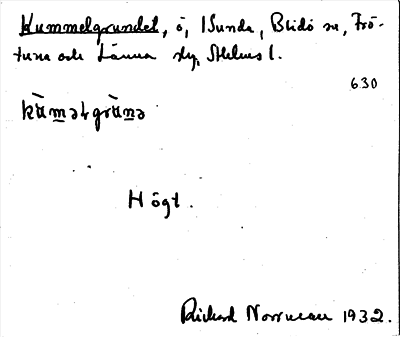 Kummelgrundet, ö, I Sunda, Blidö sn, Frö-
tuna och Länna slg, Sthlms l.
630
Högt.
Richard Norrman 1932.